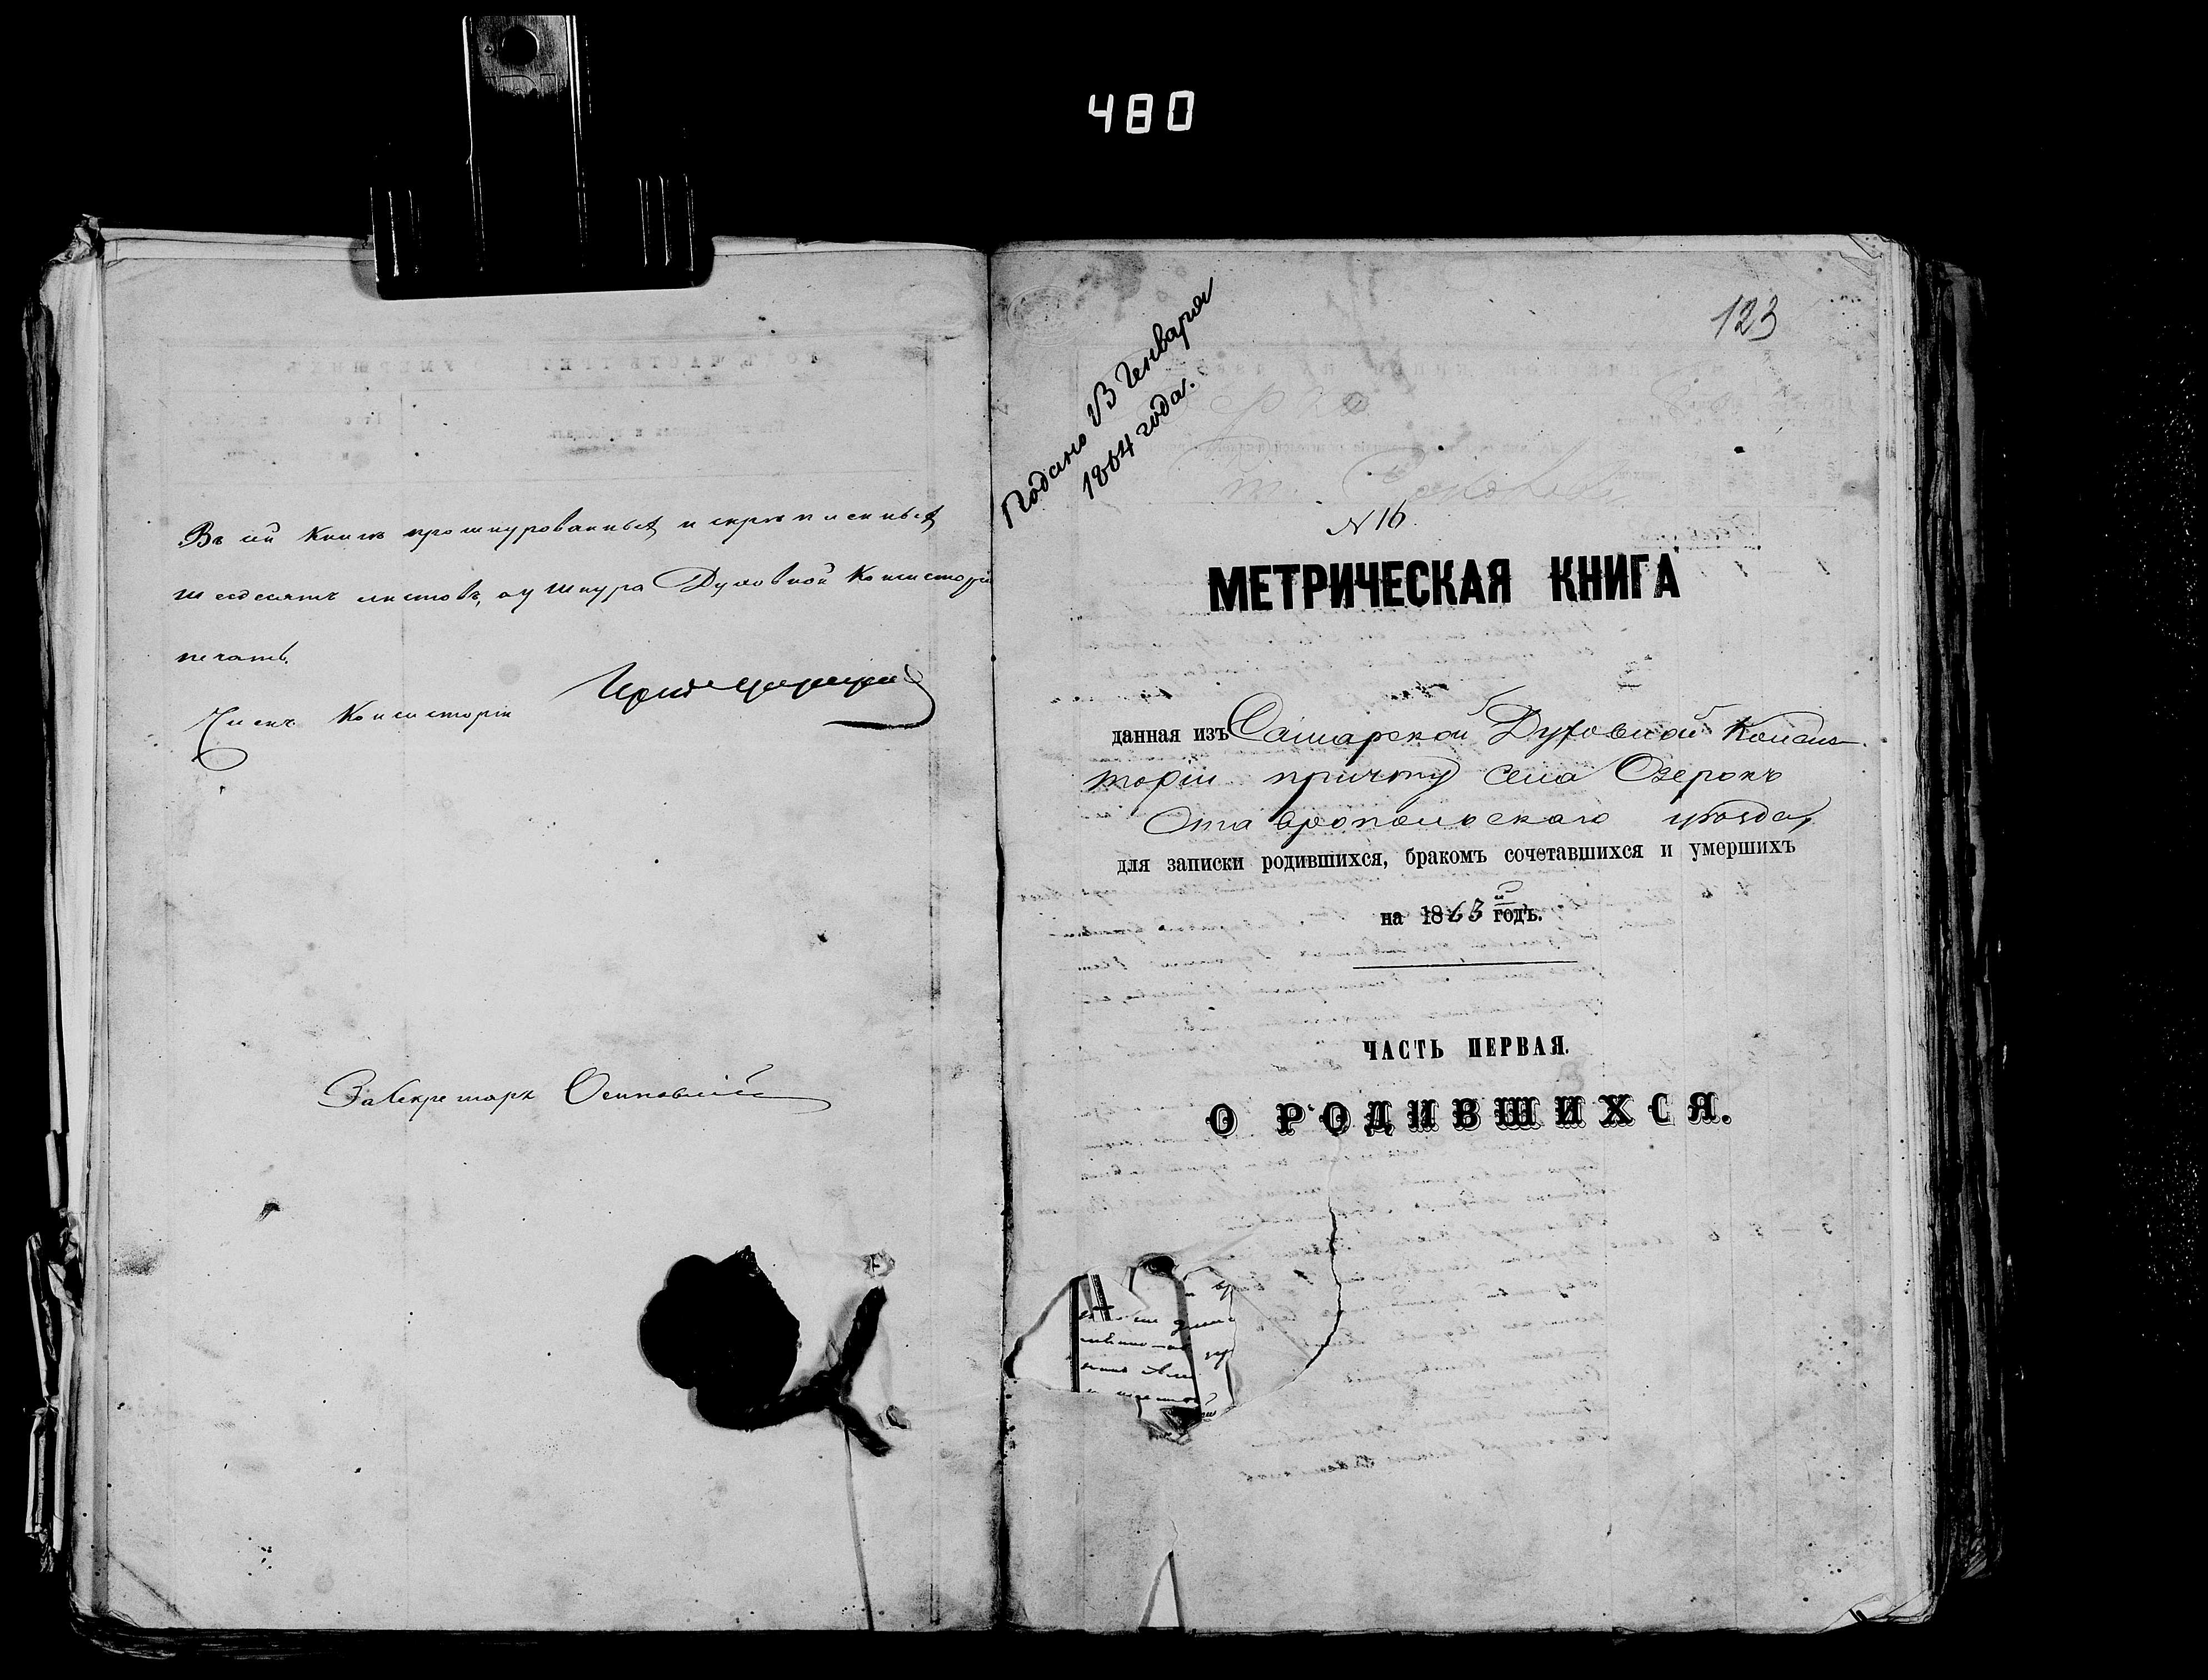 480
Въ сей книгѣ прошнурованныхъ и скрѣпленныхъ
шесдесятъ листовъ, а у шнура Духовной Консисторіи
печать.
Членъ Консисторіи
За Секретаря
123
Подано 13 Генваря
1864 года.
N 16.
МЕТРИЧЕСКАЯ КНИГА
данная изъ Самарской Духовной Консис-
торіи причту села Озерокъ
Ставропольскаго уѣзда,
для записки родившихся, бракомъ сочетавшихся и умершихъ
на 1863й годъ.
ЧАСТЬ ПЕРВАЯ.
О РОДИВШИХСЯ.